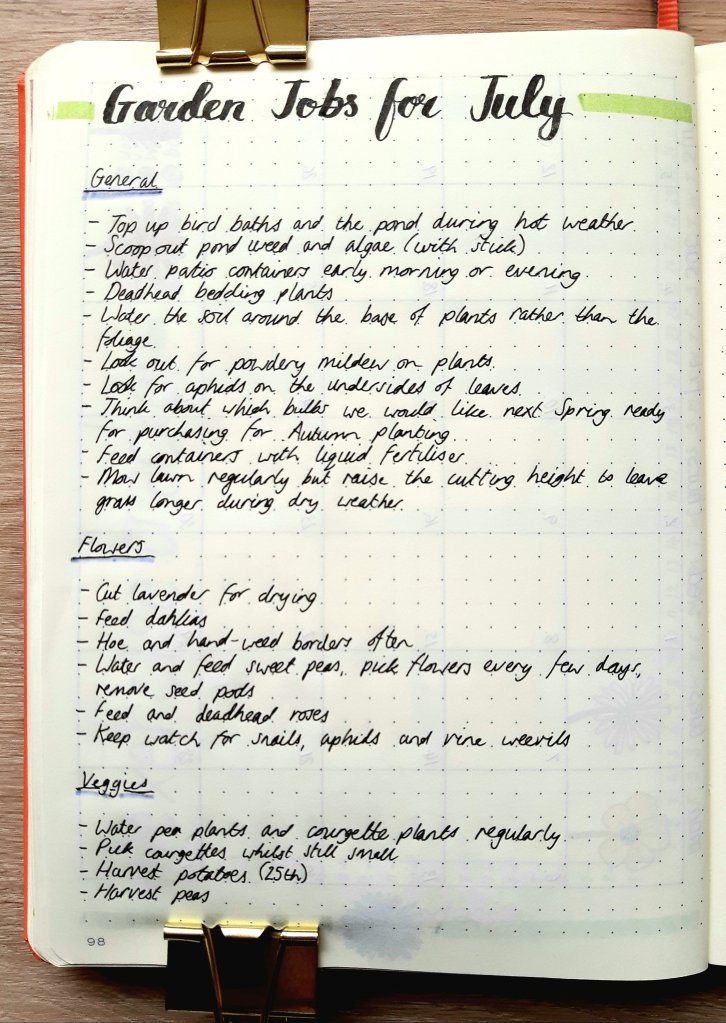 Garden Jobs for July
General
- Top up bird baths and the pond during hot weather.
- Scoop out pond weed and algae (with stick)
- Water patio containers early morning or evening.
- Deadhead bedding plants
- Water the soil around the base of plants rather than the
foliage.
- Look out for powdery mildew on plants.
- Look for aphids on the undersides of leaves.
- Think about which bulbs we would like next Spring ready
for purchasing for Autumn planting.
- Feed containers with liquid fertiliser
- Mow lawn regularly but raise the cutting height to leave
grass longer during dry weather.
Flowers
- Cut lavender for drying
- Feed dahlias
- Hoe and hand-weed borders often
- Water and feed sweet peas, pick flowers every few days,
remove seed pods
- Feed and deadhead roses
- Keep watch for snails, aphids and vine weevils
Veggies
- Water pea plants and courgette plants regularly.
- Pick courgettes whilst still small
- Harvest potatoes (25th)
- Harvest peas
98